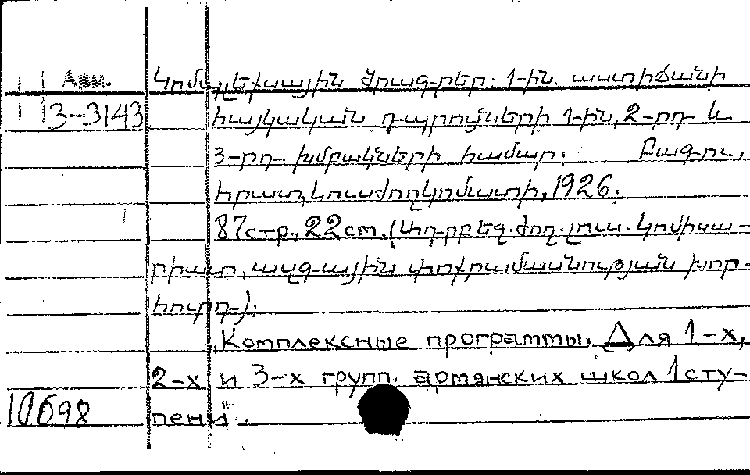 Арм. Կոմպլեխսային ծրագրեր. 1-ին աստիճանի
3-3143 հայկական դպրոցների 1-ին, 2-րդ և
3-րդ խմբակների համար: Բագու,
հրատ. Լուսժողկոմատի, 1926.
87 стр, 22 cm. (Ադրբեջ. ժող. լուս. կոմիսա-
րիատ, ազգային փոքրամասնության խոր-
հուրդ):
Комплексные программы. Для 1-х,
2-х и 3-х групп. армянских школ 1 сту-
10698 пени.